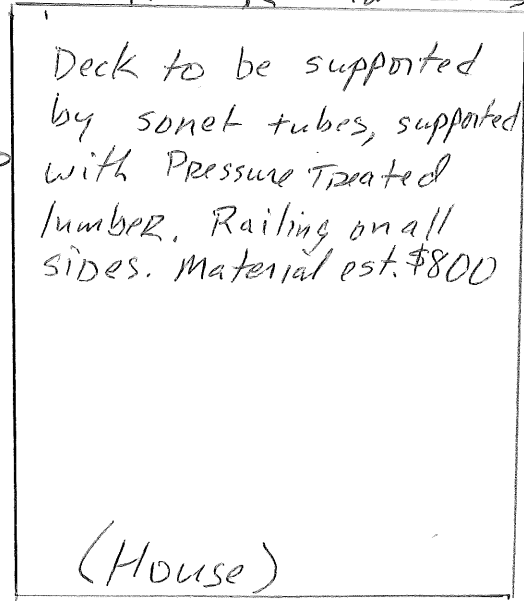 Deck to be supported
by sonet tubes, supported
with Pressure Treated
lumber. Railing on all
sides. Material est. $800
(House)